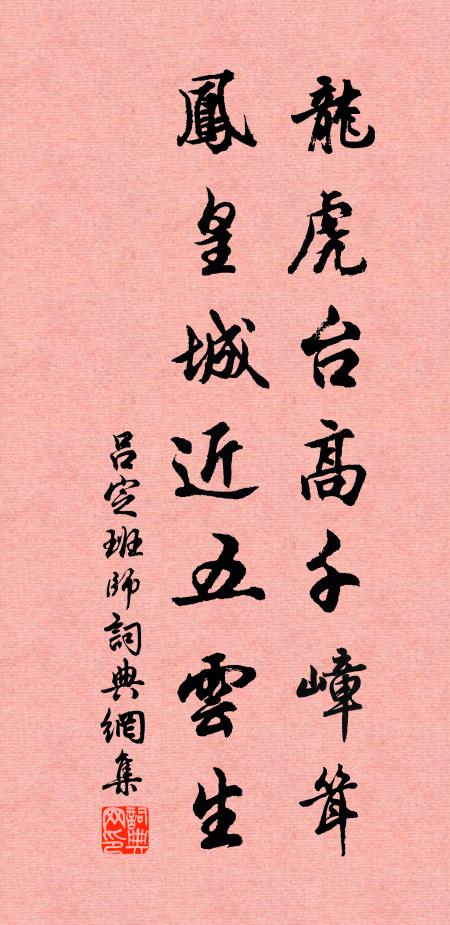 龍虎台高千嶂聳
鳳皇城近五雲生
吕定班師詞典網集
詞典网印